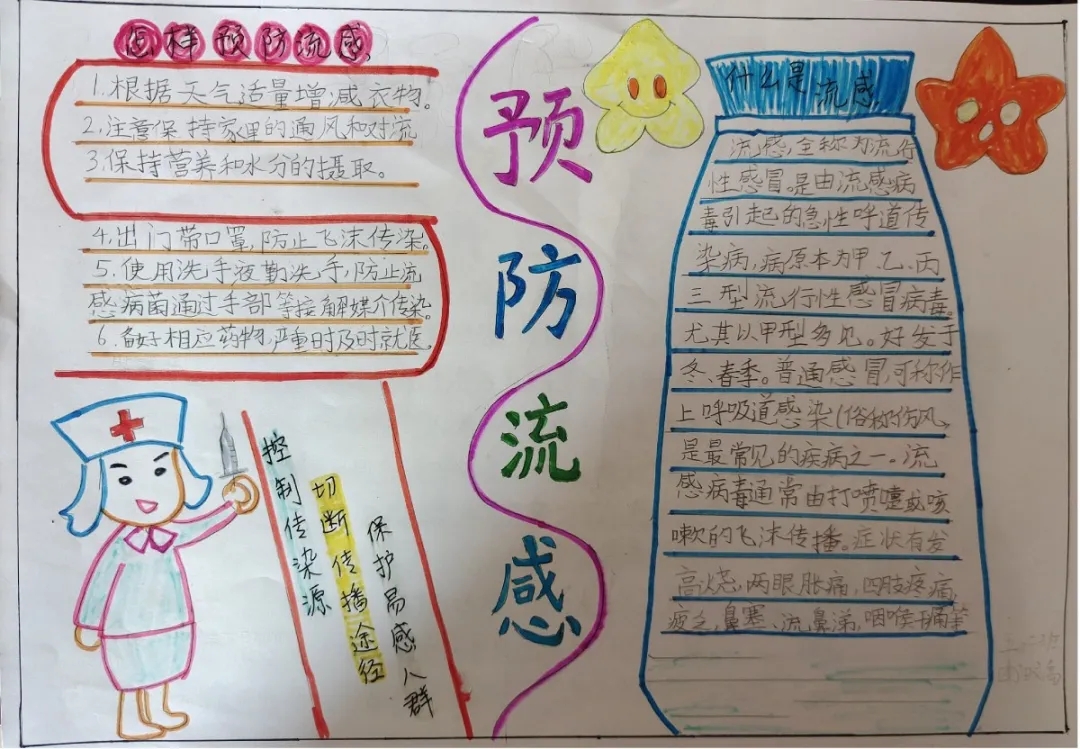 怎样预防流感
1.根据天气适量增减衣物。
2.注意保持家里的通风和对流
3.保持营养和水分的摄取。
4.出门带口罩,防止飞沫传染。
5.使用洗手液勤洗手,防止流
感病菌通过手部等接解媒介传染。
6.备好相应药物,严重时及时就医
控制传染源
切断传播途径
保护易感人群
预防流感
什么是流感
流感,全称为流行
性感冒。是由流感病
毒引起的急性呼道传
染病,病原本为甲、乙、丙
三型流行性感冒病毒。
尤其以甲型多见。好发于
冬、春季。普通感冒,可称作
上呼吸道感染(俗称伤风,
是最常见的疾病之一。流
感病毒通常由打喷嚏或咳
嗽的飞沫传播。症状有发
高烧,两眼胀痛,四肢疼痛,
疲乏,鼻塞、流鼻涕,咽喉痛等